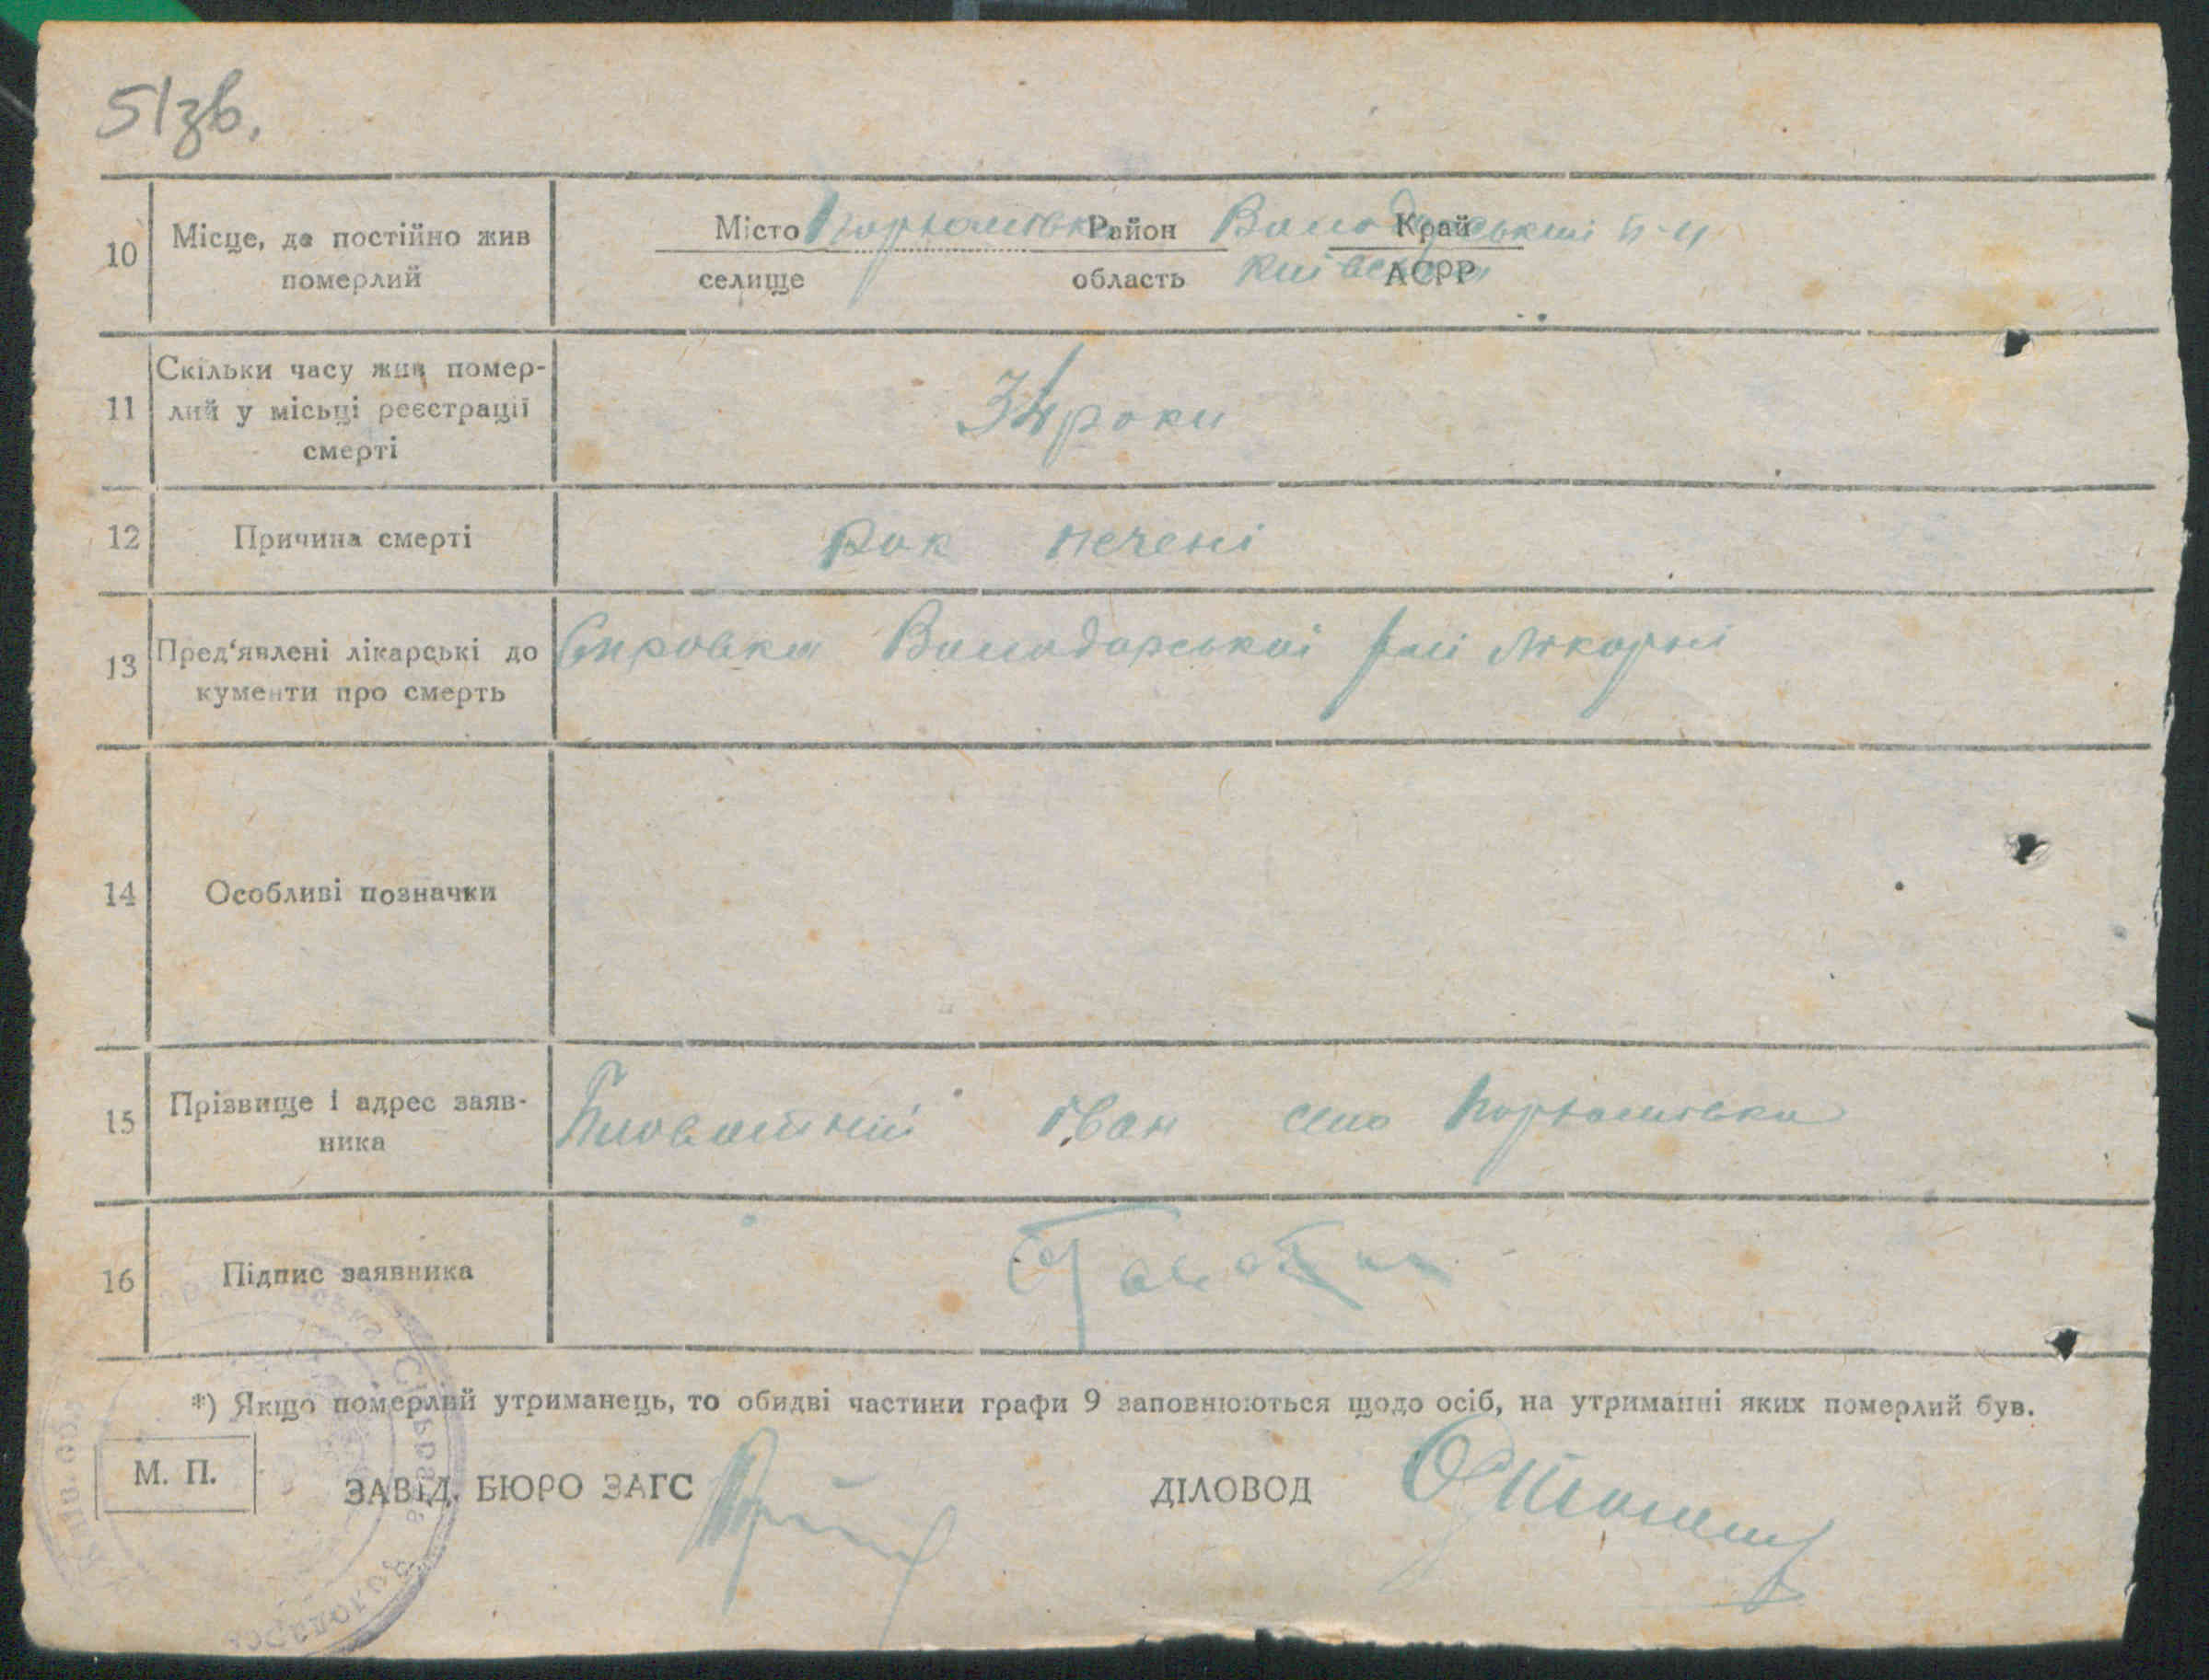 51зв.
10 Місце, де постійно жив померлий
Місто Район Володарський р-н Край
селище область Київська АСРР
11 Скільки часу жив помер-
лий у місьці реєстрації
смерті
34 роки
12 Причина смерті Рак печені
13 Пред'явлені лікарські до
кументи про смерть
Справка Володарської лікарні
14 Особливі позначки
15 Прізвище і адрес заяв-
ника
Іван село
16 Підпис заявника
*) Якщо померлий утриманець, то обидві частини графи 9 заповнюються щодо осіб, на утриманні яких померлий був.
М. П. ЗАВІД. БЮРО ЗАГС ДІЛОВОД